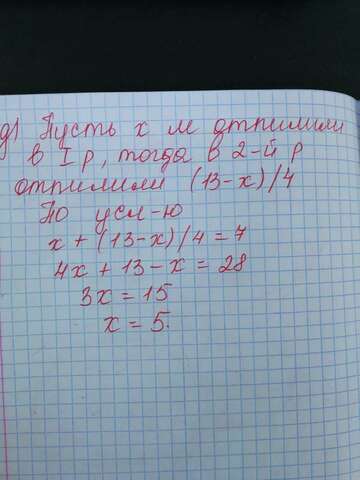 д) Пусть х м отпилили
в I р, тогда в 2-й р
отпилили (13-х)/4
По усл-ю
х + (13-х)/4 = 7
4х + 13 - х = 28
3х = 15
х = 5.